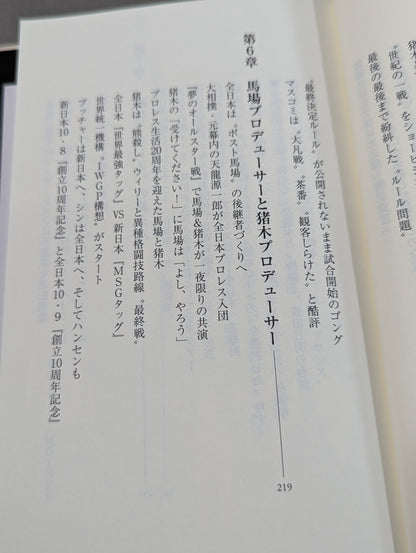 猪木
〝世紀の一戦〟をショービ
最後の最後まで紛糾した〝ルール問題〟
〝最終決定ルール〟が公開されないまま試合開始のゴング
マスコミは〝大凡戦〟〝茶番〟〝観客しらけた〟と酷評
第6章 馬場プロデューサーと猪木プロデューサー
219
全日本は〝ポスト馬場〟の後継者づくりへ
大相撲・元幕内の天龍源一郎が全日本プロレス入団
『夢のオールスター戦』で馬場&猪木が一夜限りの共演
猪木の「受けてください!」に馬場は「よし、やろう」
プロレス生活20周年を迎えた馬場と猪木
猪木は〝熊殺し〟ウィリーと異種格闘技路線〝最終戦〟
全日本『世界最強タッグ』VS新日本『MSGタッグ』
世界統一機構〝IWGP構想〟がスタート
ブッチャーは新日本へ、シンは全日本へ、そしてハンセンも
新日本10・8『創立10周年記念』と全日本10・9『創立10周年記念』